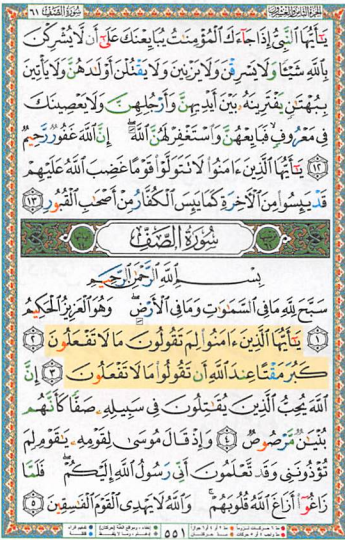 سُورَةُ الصَّفِّ ٦١
يَٰٓأَيُّهَا النَّبِيُّ إِذَا جَآءَكَ الْمُؤْمِنَٰتُ يُبَايِعْنَكَ عَلَىٰٓ أَن لَّا يُشْرِكْنَ
بِاللَّهِ شَيْـًٔا وَلَا يَسْرِقْنَ وَلَا يَزْنِينَ وَلَا يَقْتُلْنَ أَوْلَٰدَهُنَّ وَلَا يَأْتِينَ
بِبُهْتَٰنٍ يَفْتَرِينَهُۥ بَيْنَ أَيْدِيهِنَّ وَأَرْجُلِهِنَّ وَلَا يَعْصِينَكَ
فِى مَعْرُوفٍ فَبَايِعْهُنَّ وَاسْتَغْفِرْ لَهُنَّ اللَّهَ إِنَّ اللَّهَ غَفُورٌ رَّحِيمٌ
١٢ يَٰٓأَيُّهَا الَّذِينَ ءَامَنُوا لَا تَتَوَلَّوْا قَوْمًا غَضِبَ اللَّهُ عَلَيْهِمْ
قَدْ يَئِسُوا مِنَ الْءَاخِرَةِ كَمَا يَئِسَ الْكُفَّارُ مِنْ أَصْحَٰبِ الْقُبُورِ ١٣
سُورَةُ الصَّفِّ
بِسْمِ اللَّهِ الرَّحْمَٰنِ الرَّحِيمِ
سَبَّحَ لِلَّهِ مَا فِى السَّمَٰوَٰتِ وَمَا فِى الْأَرْضِ وَهُوَ الْعَزِيزُ الْحَكِيمُ
١ يَٰٓأَيُّهَا الَّذِينَ ءَامَنُوا لِمَ تَقُولُونَ مَا لَا تَفْعَلُونَ ٢
كَبُرَ مَقْتًا عِندَ اللَّهِ أَن تَقُولُوا مَا لَا تَفْعَلُونَ ٣ إِنَّ
اللَّهَ يُحِبُّ الَّذِينَ يُقَٰتِلُونَ فِى سَبِيلِهِۦ صَفًّا كَأَنَّهُم
بُنْيَٰنٌ مَّرْصُوصٌ ٤ وَإِذْ قَالَ مُوسَىٰ لِقَوْمِهِۦ يَٰقَوْمِ لِمَ
تُؤْذُونَنِى وَقَد تَّعْلَمُونَ أَنِّى رَسُولُ اللَّهِ إِلَيْكُمْ فَلَمَّا
زَاغُوٓا أَزَاغَ اللَّهُ قُلُوبَهُمْ وَاللَّهُ لَا يَهْدِى الْقَوْمَ الْفَٰسِقِينَ ٥
٥٥١